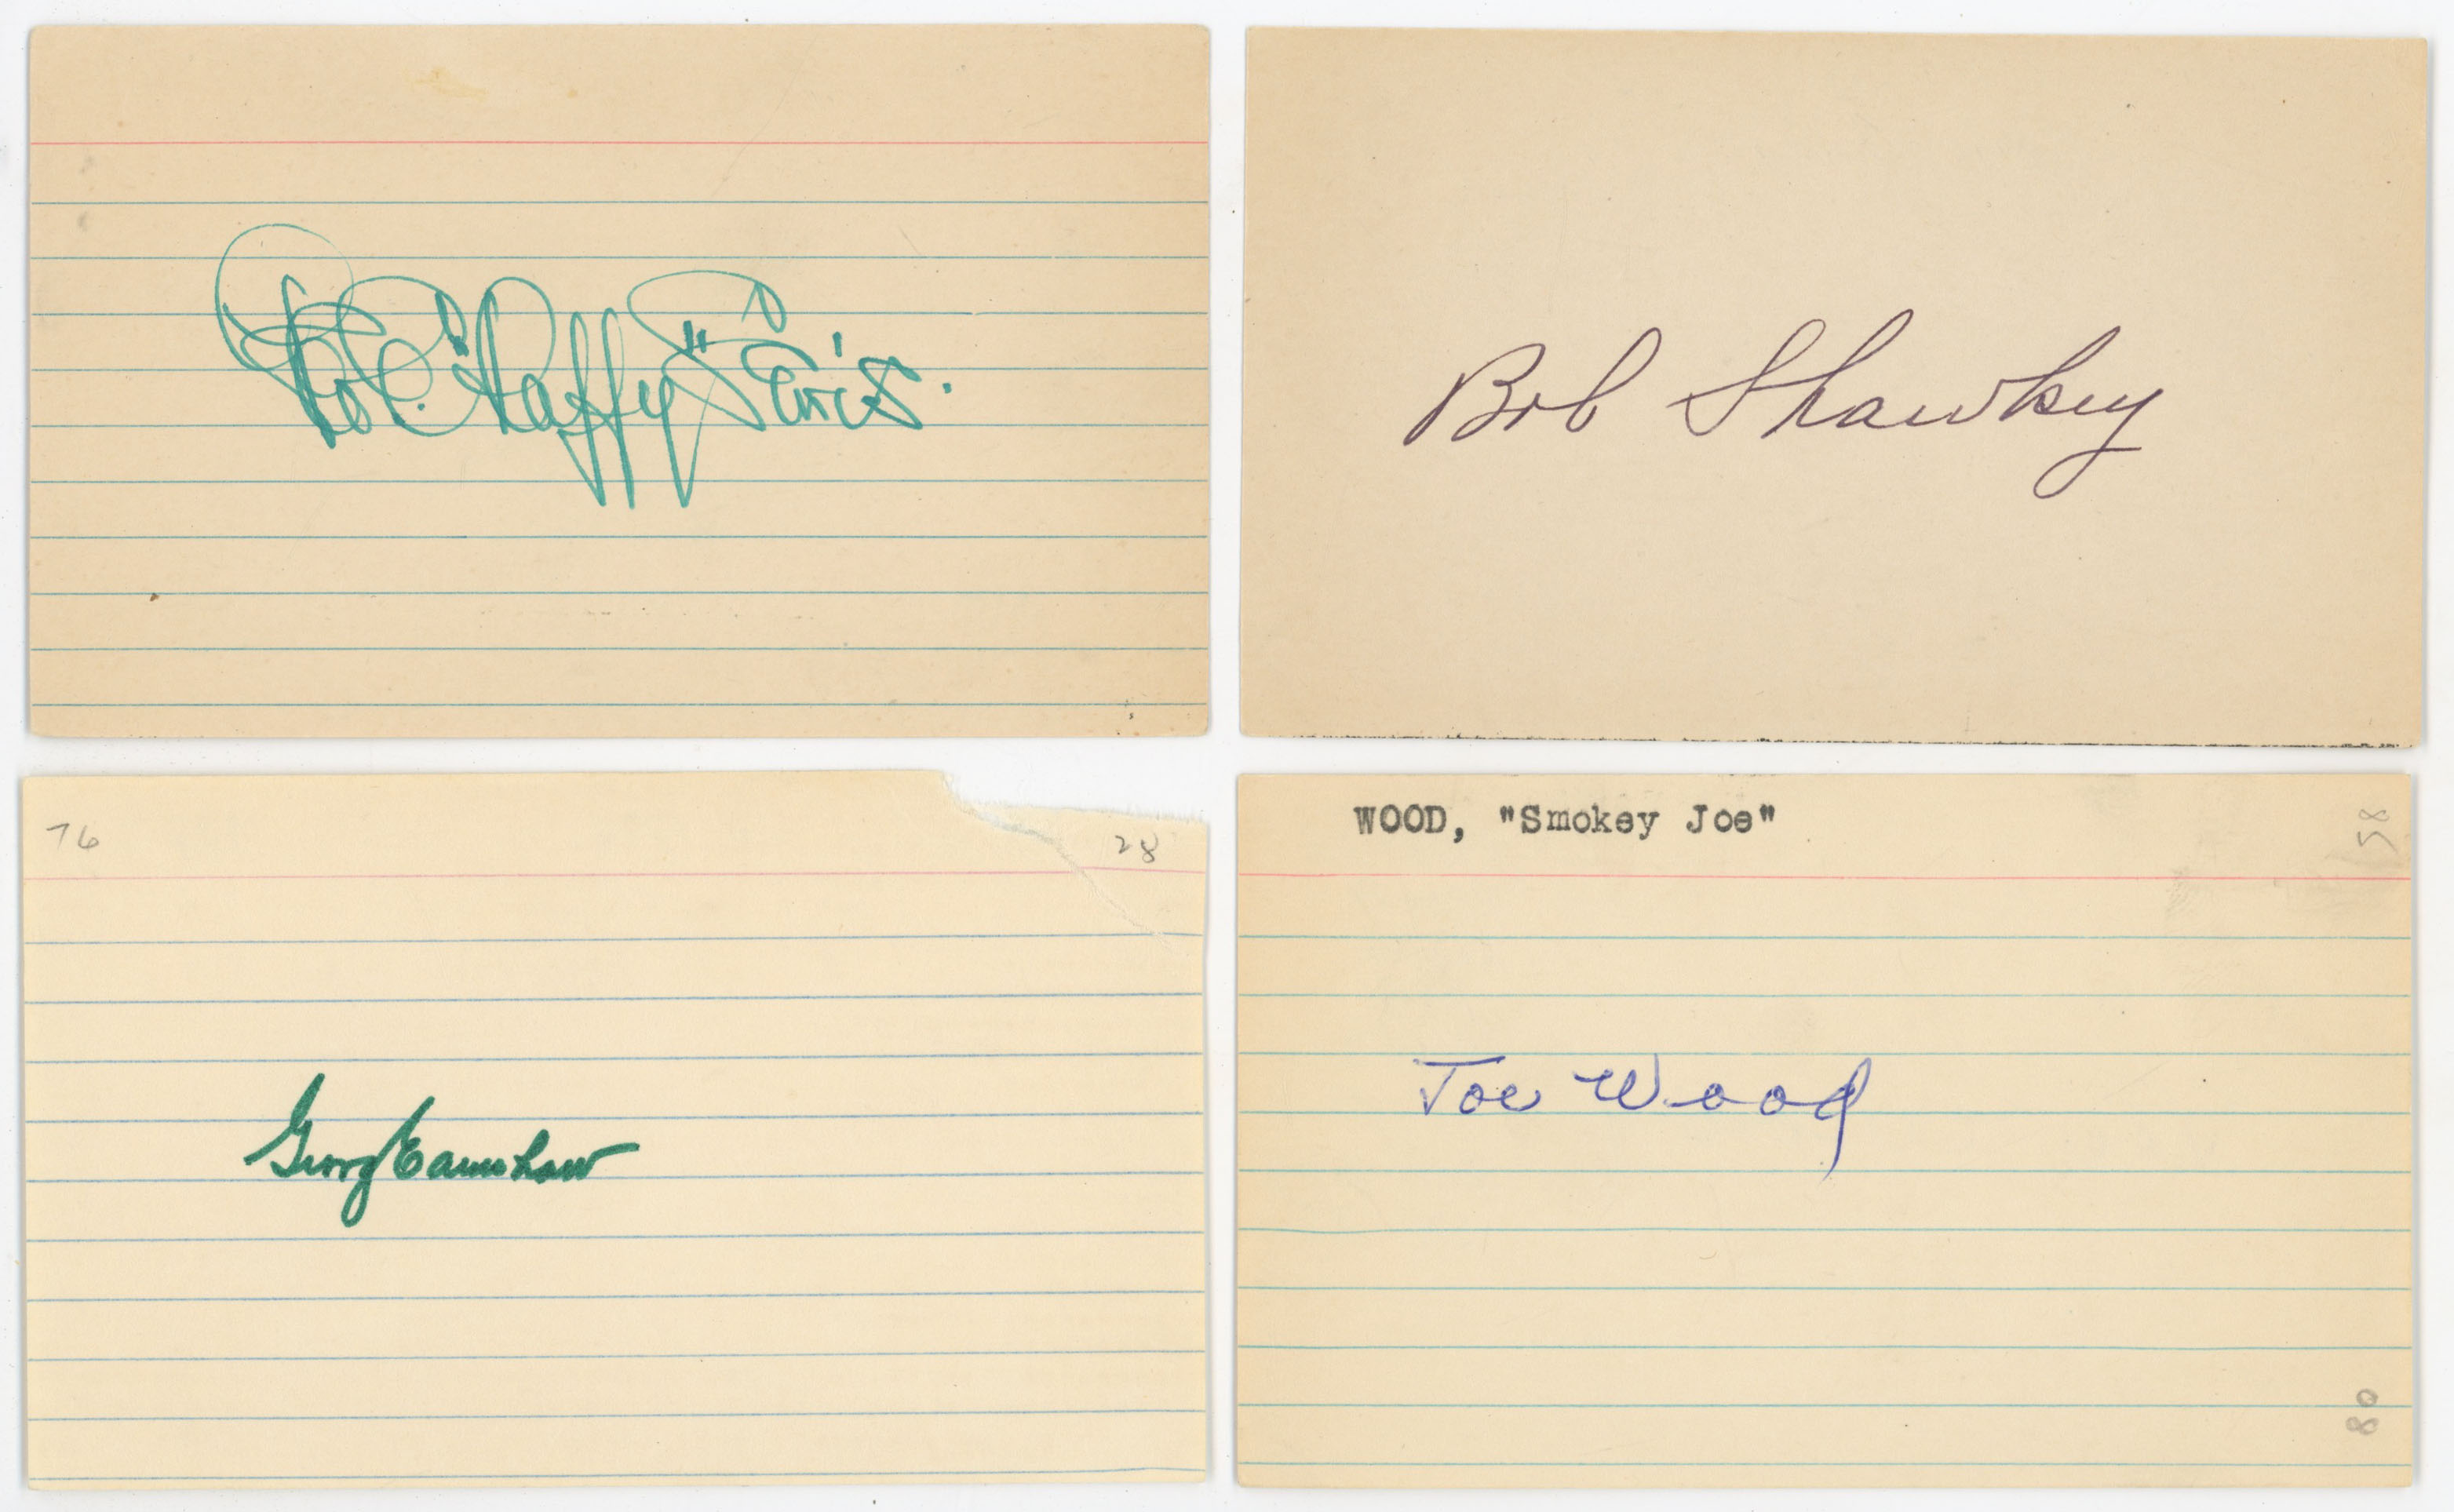 Geo. E. "Duffy" Lewis.
Bob Shawkey
76
28
George Earnshaw
WOOD, "Smokey Joe"
58
Joe Wood
80